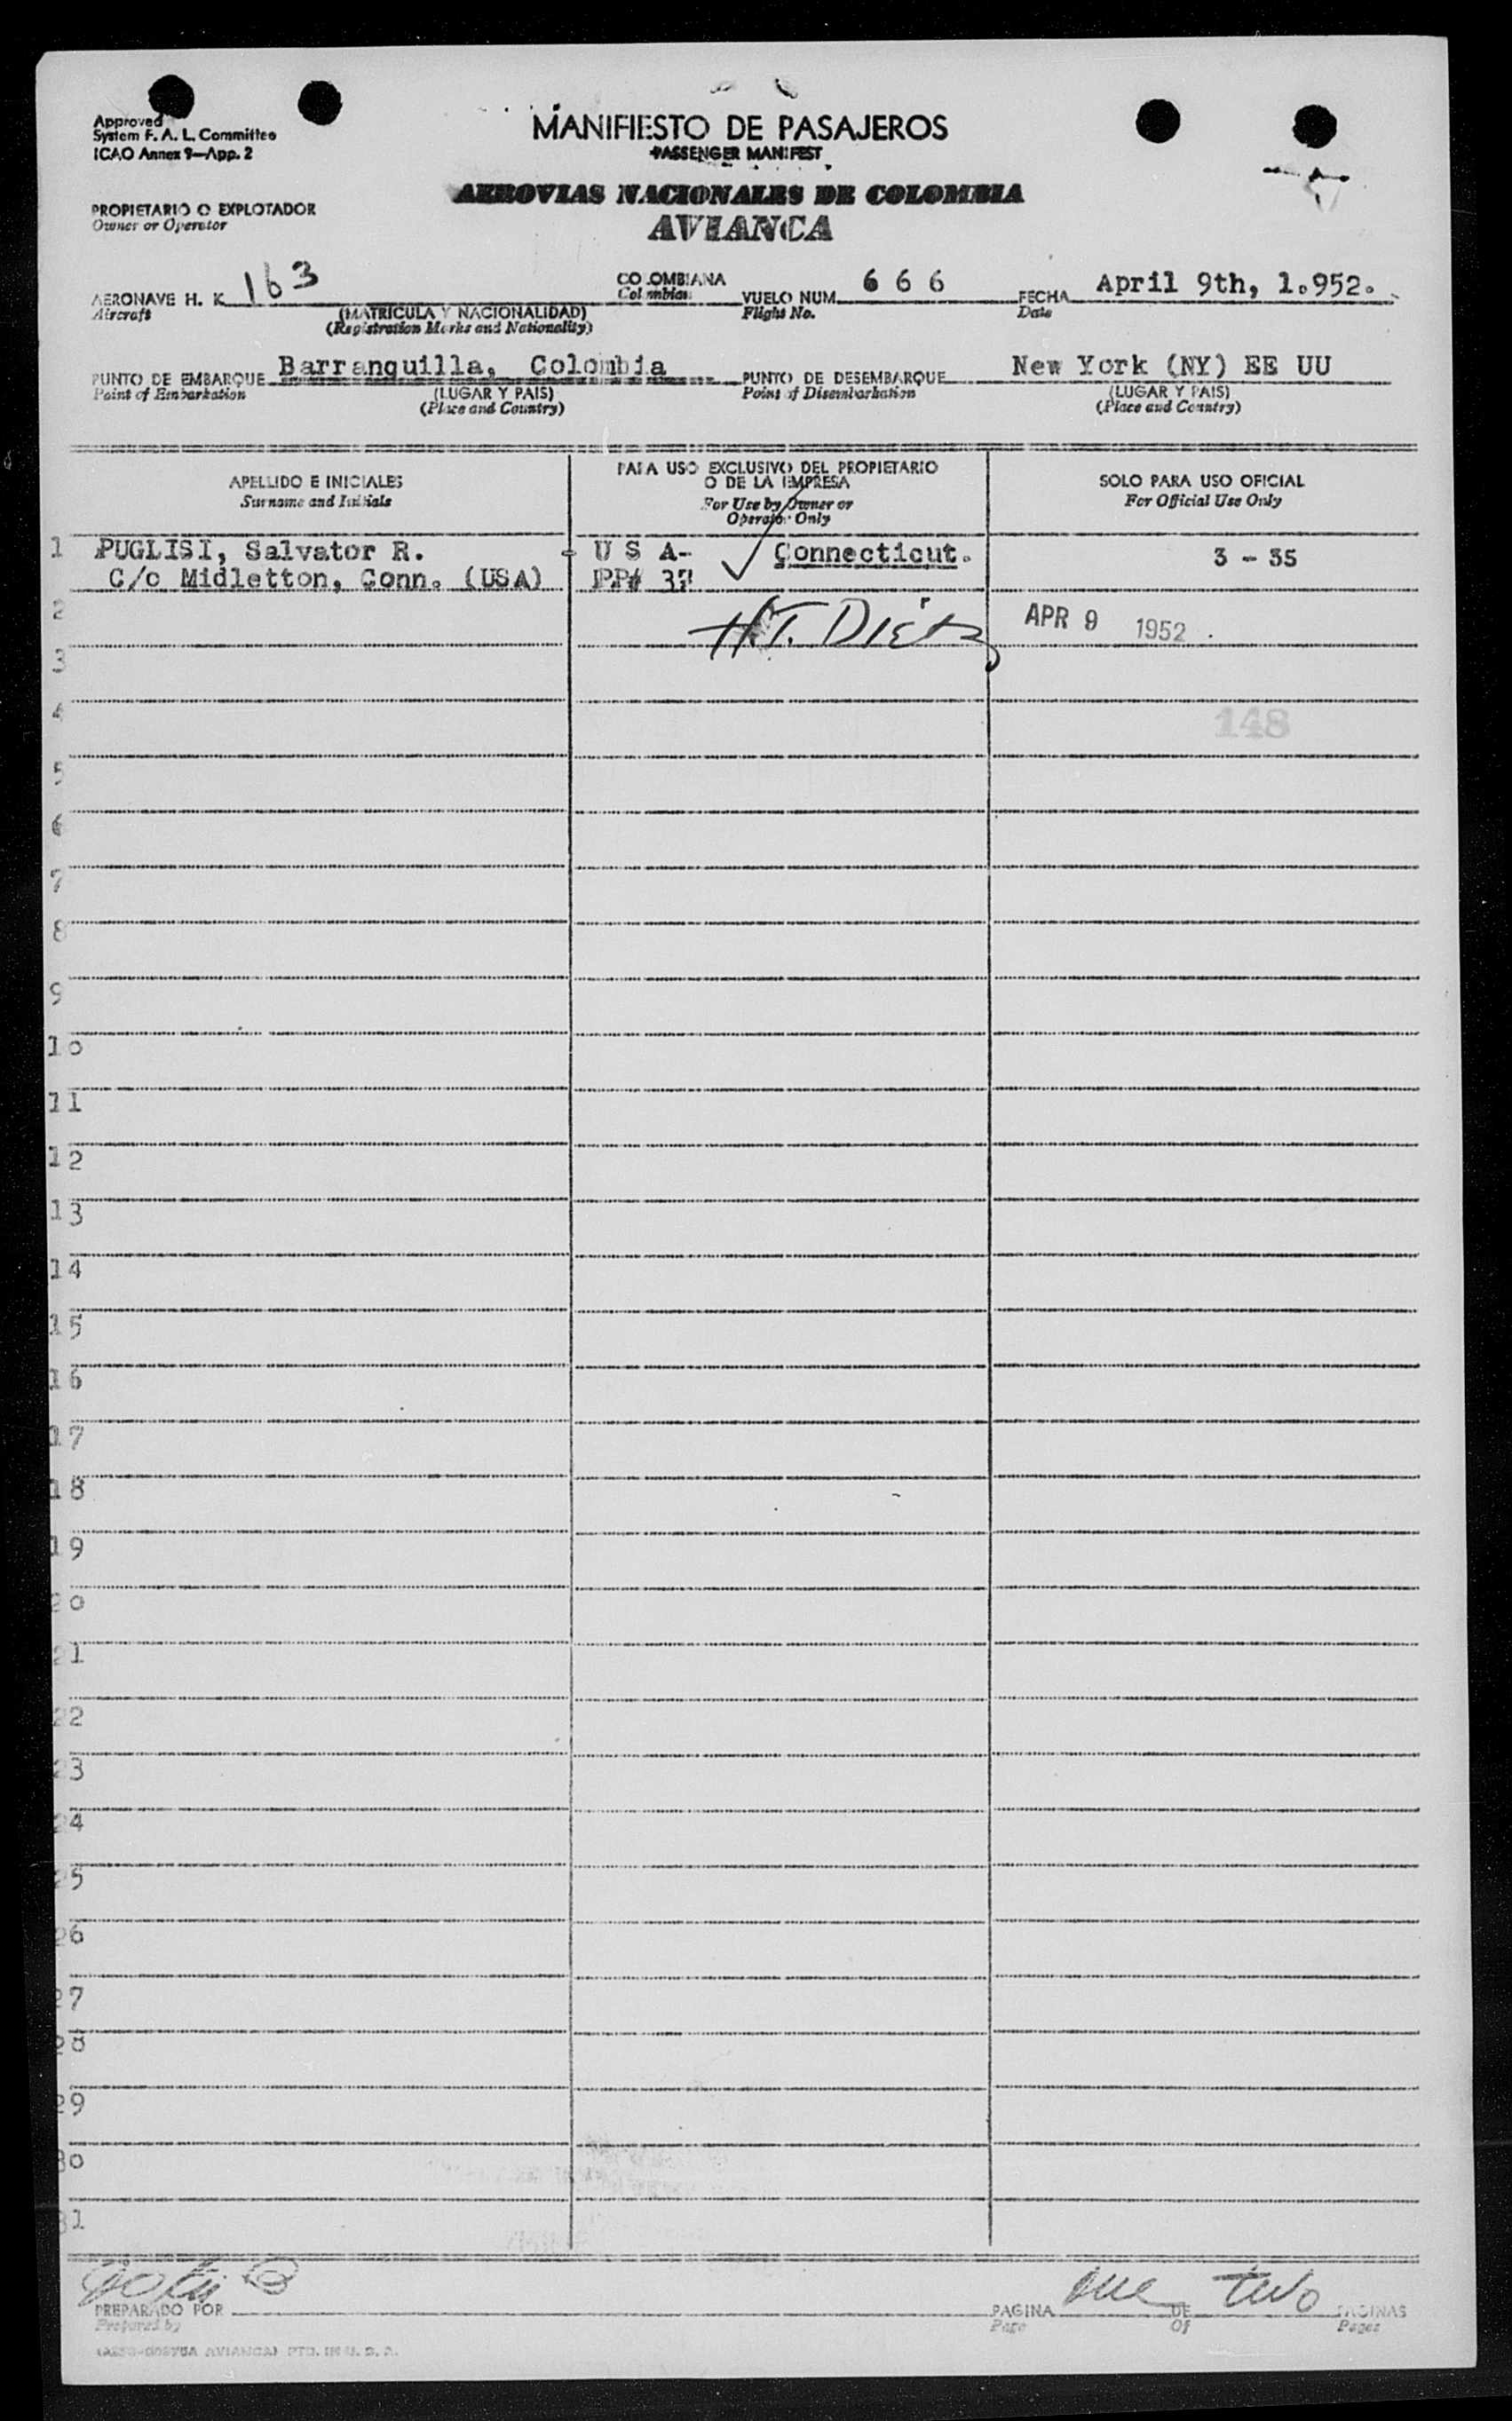 Approved
System F. A. L. Committee
ICAO Annex 9—App. 2
MANIFIESTO DE PASAJEROS
PASSENGER MANIFEST
AEROVIAS NACIONALES DE COLOMBIA
AVIANCA
PROPIETARIO O EXPLOTADOR
Owner or Operator
AERONAVE H. K 163
Aircraft
(MATRICULA Y NACIONALIDAD)
(Registration Marks and Nationality)
COLOMBIANA
Colombian
VUELO NUM. 6 6 6
Flight No.
FECHA April 9th, 1.952.
Date
PUNTO DE EMBARQUE Barranquilla, Colombia
Point of Embarkation
(LUGAR Y PAIS)
(Place and Country)
PUNTO DE DESEMBARQUE New York (NY) EE UU
Point of Disembarkation
(LUGAR Y PAIS)
(Place and Country)
APELLIDO E INICIALES
Surname and Initials
PARA USO EXCLUSIVO DEL PROPIETARIO
O DE LA EMPRESA
For Use by Owner or
Operator Only
SOLO PARA USO OFICIAL
For Official Use Only
1 PUGLISI, Salvator R. - U S A- Connecticut. 3 - 35
C/o Midletton, Conn. (USA) PP# 37
2 H.T. Dietz APR 9 1952
3
4 148
5
6
7
8
9
10
11
12
13
14
15
16
17
18
19
20
21
22
23
24
25
26
27
28
29
30
31
PREPARADO POR
Prepared by
PAGINA one DE two PAGINAS
Page Of Pages
AVIANCA) PTD. IN U. S. A.